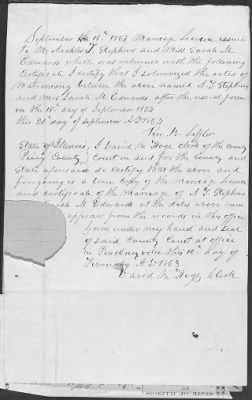 September the 18th 1854 Marriage License issued
to Mr Archles T. Stephens and Miss Sarah M.
Edwards which was returned with the following
Certificate I certify that I solemnized the rites of
Matrimony between the above named A. T. Stephens
and Mrs Sarah M. Edwards after the usual form
on the 18th day of September 1854
this 21st day of September A.D. 1854
B.
State of Illinois, I David Mc Hogg Clerk of the county
Perry County court in and for the County and
State aforesaid do certify that the above and
foregoing is a true copy of the Marriage License
and certificate of the Marriage of A. T. Stephens
Sarah M. Edwards at the dates above
appears from the records in this office
Given under my hand and Seal
of said County Court at office
in Pinckneyville this 10th day of
February A.D. 1863
David Mc Hogg Clerk
STATE OF ILLINOIS